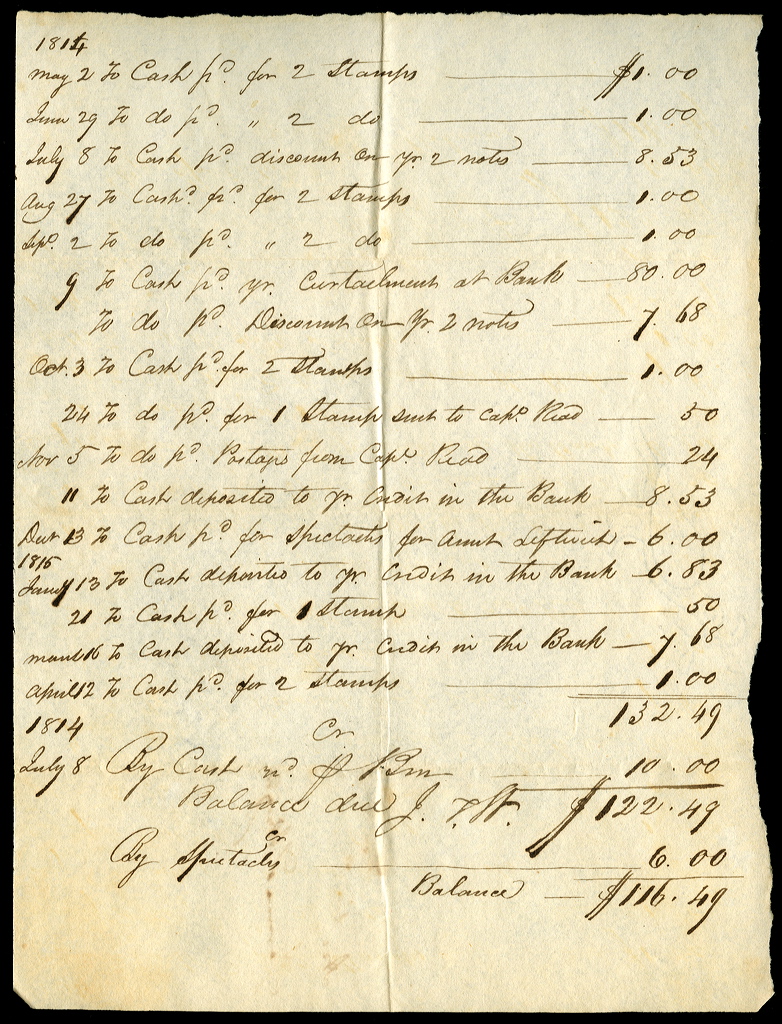 1814
May 2 To Cash pd. for 2 Stamps $1.00
June 29 To do pd. " 2 do 1.00
July 8 To Cash pd. discount on yr. 2 notes 8.53
Aug 27 To Cash pd. for 2 Stamps 1.00
Sept. 2 To do pd. " 2 do 1.00
9 To Cash pd. yr. Curtailment at Bank 80.00
To do pd. Discount on yr. 2 notes 7.68
Oct. 3 To Cash pd. for 2 Stamps 1.00
24 To do pd. for 1 Stamp sent to Capt. Read 50
Nov 5 To do pd. Postage from Capt. Read 24
11 To Cash deposited to yr. Credit in the Bank 8.53
13 To Cash pd. for Spectacles for Leftwich 6.00
1815
Jany 13 To Cash deposited to yr. Credit in the Bank 6.83
21 To Cash pd. for 1 Stamp 50
March 16 To Cash deposited to yr. Credit in the Bank 7.68
April 12 To Cash pd. for 2 Stamps 1.00
132.49
1814
Cr
July 8 By Cash 10.00
Balance due J. $122.49
Cr
By Spectacles 6.00
Balance $116.49